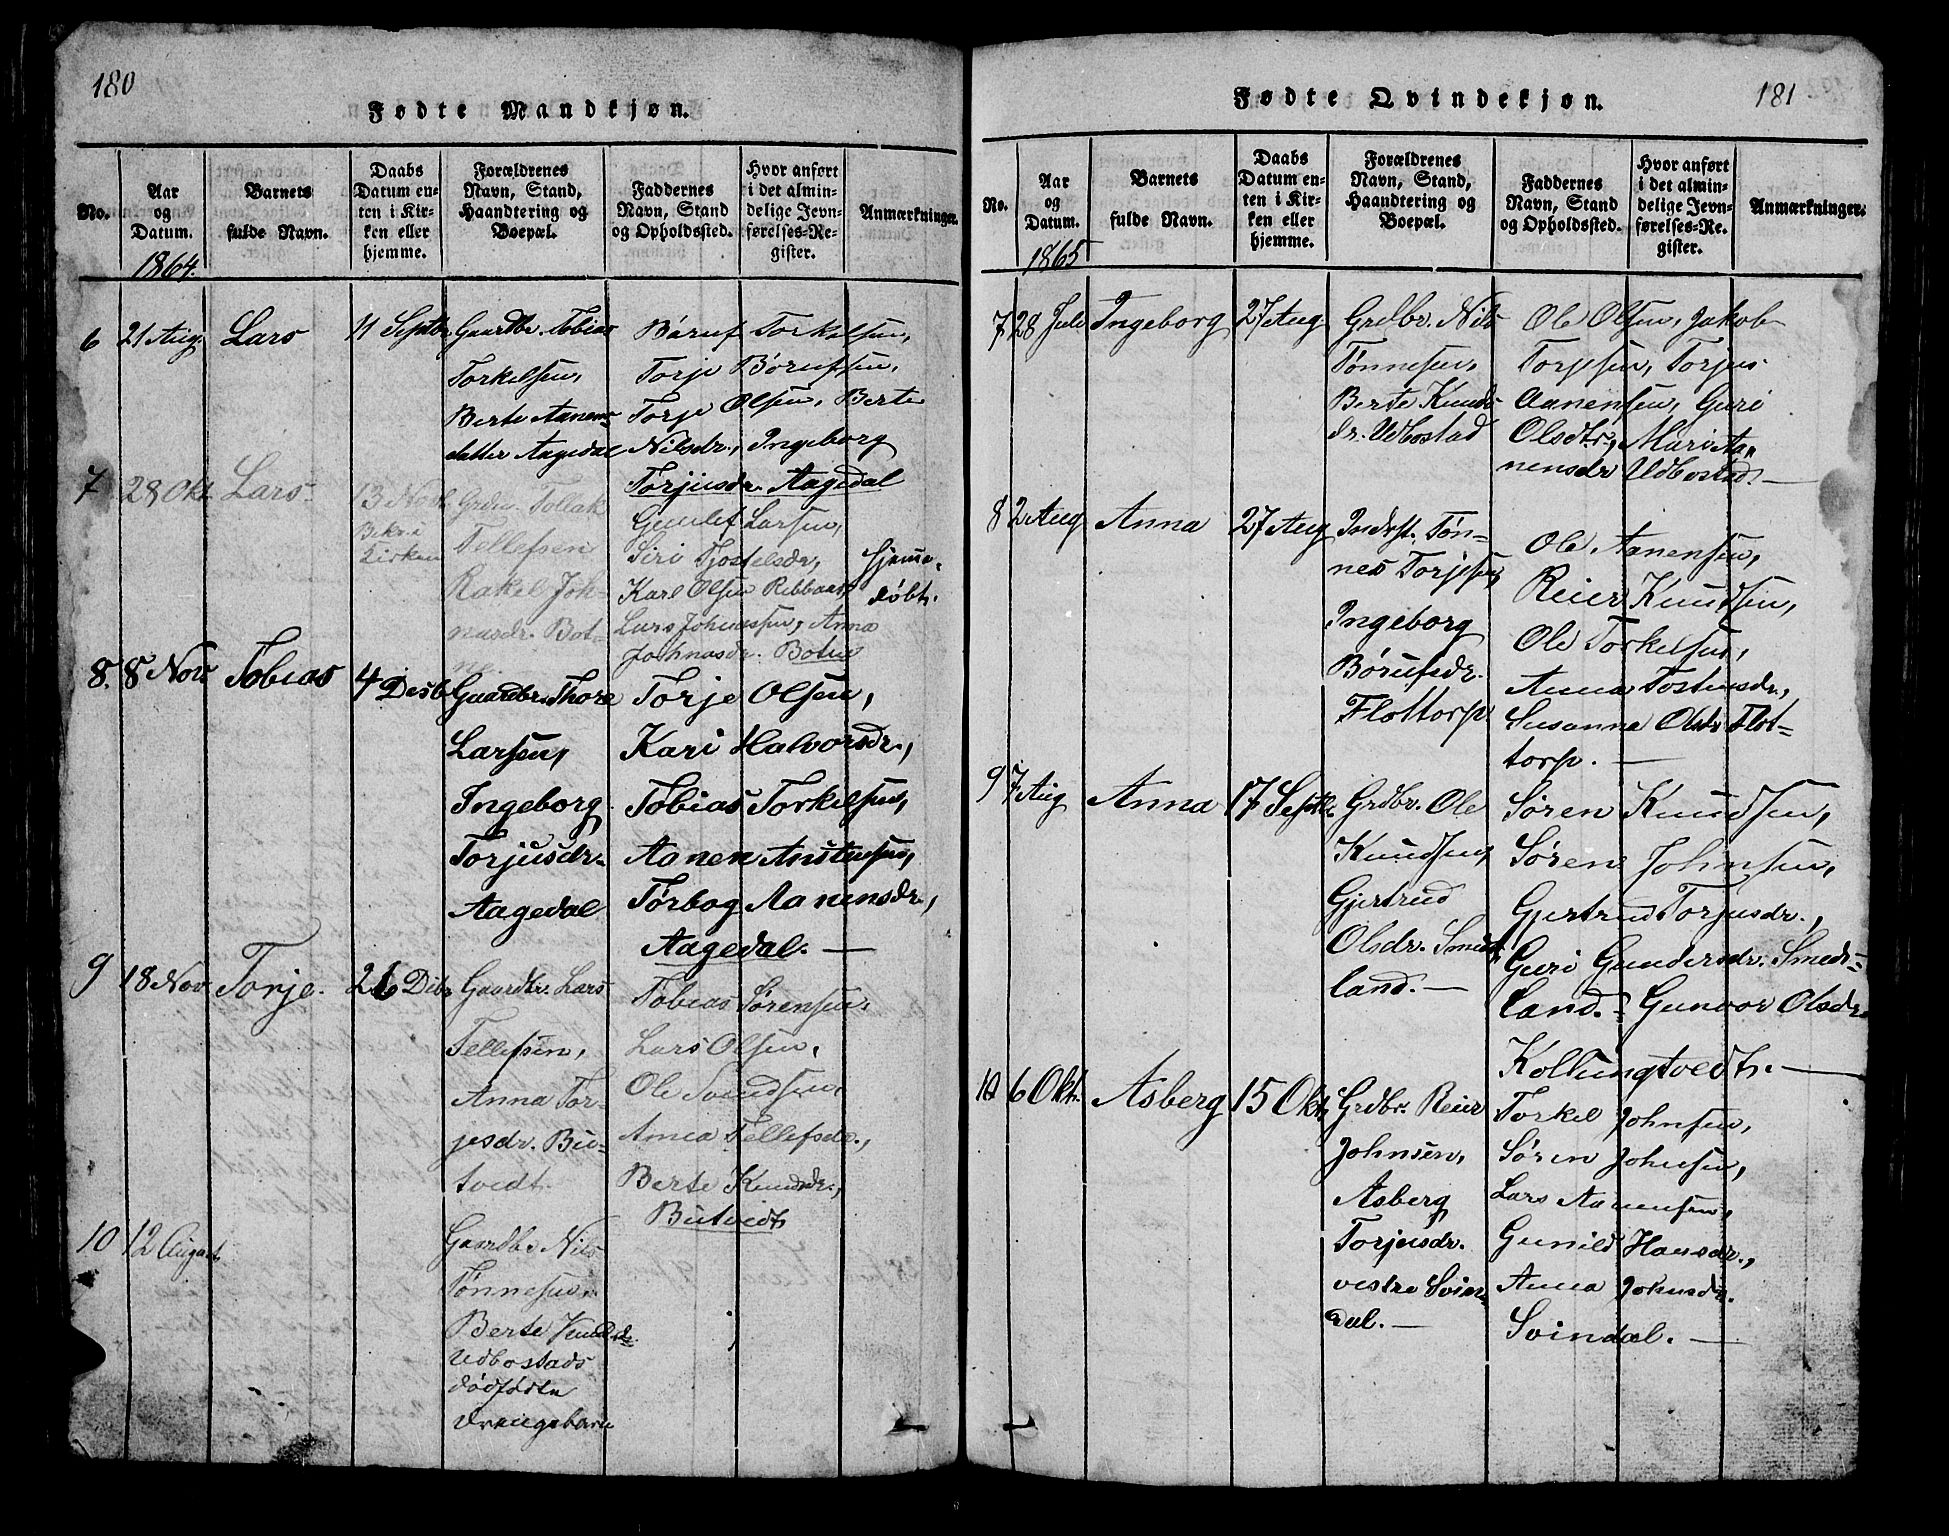 180
Fødte Mandkjøn.
No.
Aar og Datum.
Barnets fulde Navn.
Daabs Datum enten i Kirken eller hjemme.
Forældrenes Navn, Stand, Haandtering og Boepæl.
Faddernes Navn, Stand og Opholdssted.
Hvor anført i det almindelige Jevnførelses-Register.
Anmærkninger.
1864.
6 21 Aug. Lars 11 Septbr Gaardbr. Tobias
Torkelsen,
Berte Aanens-
datter Aagedal
Børuf Torkelsen,
Torje Børufsen,
Torje Olsen, Berte
Nilsdr., Ingeborg
Torjusdr. Aagedal
7 28 Okt. Lars 13 Novb.
Bekr. i
Kirken
Grdm. Tollak
Tellefsen
Rakel Joh-
nasdr. Bot-
ne.
Gunlef Larsen,
Siri Tjostelsdr,
Karl Olsen Ribbaas,
Lars Johnassen, Anna
Johnasdr. Botne
hjemme-
døbt.
8. 8 Nov. Tobias 4 Desb. Gaardbr. Thore
Larsen,
Ingeborg
Torjusdr.
Aagedal
Torje Olsen,
Kari Halvorsdr.,
Tobias Torkelsen,
Aanen Anstensen,
Tørbog Aanensdr.,
Aagedal. —
9 18 Nov. Torje. 26 Dbr. Gaardbr. Lars
Tellefsen,
Anna Tor-
jesdr. Bu-
tvedt.
Tobias Sørensen,
Lars Olsen,
Ole Svendsen,
Anna Tellefsdr.,
Berte Knudsdr.,
Butvedt
10 12 August.
Gaardbr Nils
Tønnesen,
Berte Knudsdr.
Udbostads
dødfødte
drengebarn
181
Fødte Qvindekjøn.
No.
Aar og Datum.
Barnets fulde Navn.
Daabs Datum enten i Kirken eller hjemme.
Forældrenes Navn, Stand, Haandtering og Boepæl.
Faddernes Navn, Stand og Opholdssted.
Hvor anført i det almindelige Jevnførelses-Register.
Anmærkninger.
1865
7 28 Juli Ingeborg 27 Aug Grdbr. Nils
Tønnesen,
Berte Knuds-
dr. Udbostad
Ole Olsen, Jakob
Torjesen, Torjus
Aanensen, Guri
Olsdtr., Mari Aa-
nensdr Udbostad. —
8 2 Aug Anna 27 Aug Inderst. Tøn-
nes Torjesen,
Ingeborg
Børufsdr.
Flottorp
Ole Aanensen,
Reier Knudsen,
Ole Torkelsen,
Anna Tostensdr.,
Susanna Olsdr. Flot-
torp. —
9 7 Aug Anna 17 Septbr. Grdbr. Ole
Knudsen,
Gjertrud
Olsdr. Smeds-
land. —
Søren Knudsen,
Søren Johnsen,
Gjertrud Torjusdr.,
Guri Gundersdr. Smeds-
land. Gunvor Olsdr.
Kollungtvedt. —
10 6 Okt. Asberg 15 Okt. Grdbr. Reier
Johnsen,
Asberg
Torjusdr.
vestre Svin-
dal. —
Torkel Johnsen,
Søren Johnsen,
Lars Aanensen,
Gunild Hansdr.,
Anna Johnsdr.
Svindal. —